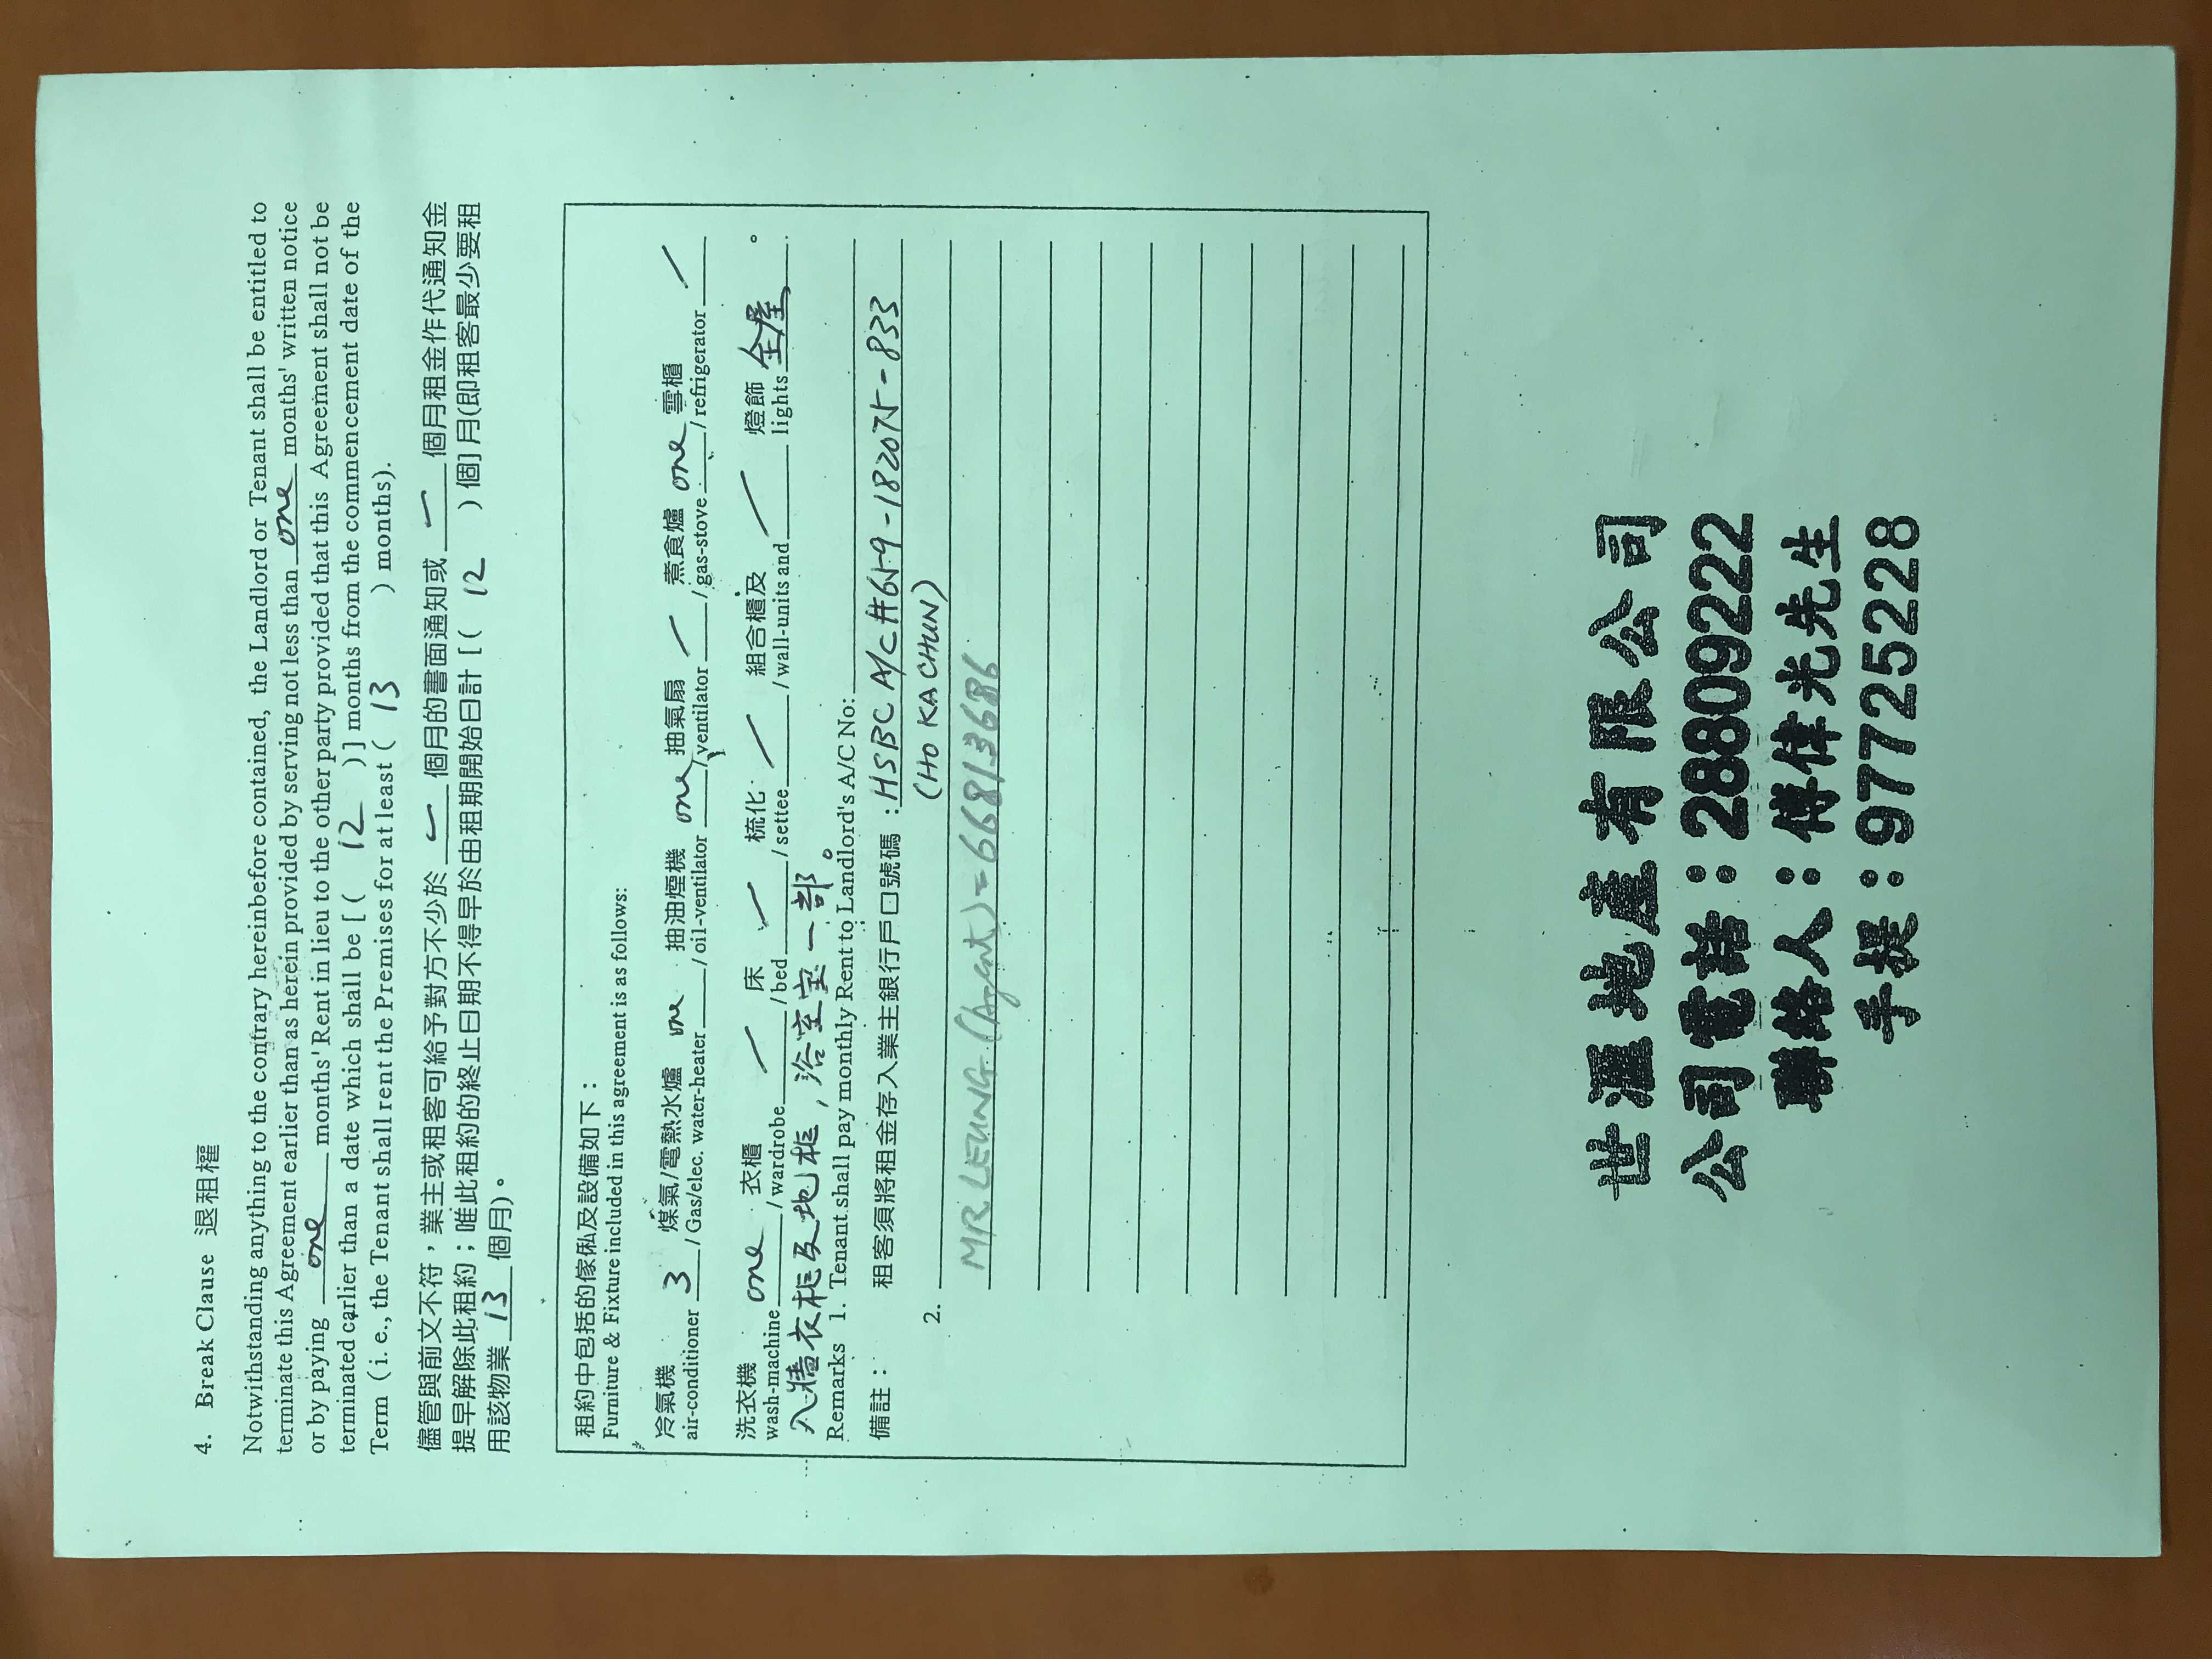 4. Break Clause 退租權
Notwithstanding anything to the contrary hereinbefore contained, the Landlord or Tenant shall be entitled to
terminate this Agreement earlier than as herein provided by serving not less than one months' written notice
or by paying one months' Rent in lieu to the other party provided that this Agreement shall not be
terminated earlier than a date which shall be [( 12 )] months from the commencement date of the
Term (i. e., the Tenant shall rent the Premises for at least ( 13 ) months).
儘管與前文不符，業主或租客可給予對方不少於 一 個月的書面通知或 一 個月租金作代通知金
提早解除此租約；唯此租約的終止日期不得早於由租期開始日計 [( 12 ) 個] 月(即租客最少要租
用該物業 13 個月)。
租約中包括的傢俬及設備如下：
Furniture & Fixture included in this agreement is as follows:
冷氣機 煤氣/電熱水爐 抽油煙機 抽氣扇 煮食爐 雪櫃
air-conditioner 3 / Gas/elec. water-heater one / oil-ventilator one / ventilator / / gas-stove one / refrigerator /
洗衣機 衣櫃 床 梳化 組合櫃及 燈飾 。
wash-machine one / wardrobe / / bed / / settee / / wall-units and / lights 全屋 .
入牆衣柜及地柜，浴室宝一部。
Remarks 1. Tenant shall pay monthly Rent to Landlord's A/C No:
備註： 租客須將租金存入業主銀行戶口號碼：HSBC A/C# 659-182075-833
(HO KA CHUN)
2.
MR. LEUNG (Agent) = 66813686
世滙地產有限公司
公司電話：28809222
聯絡人：傅偉光先生
手提：97725228